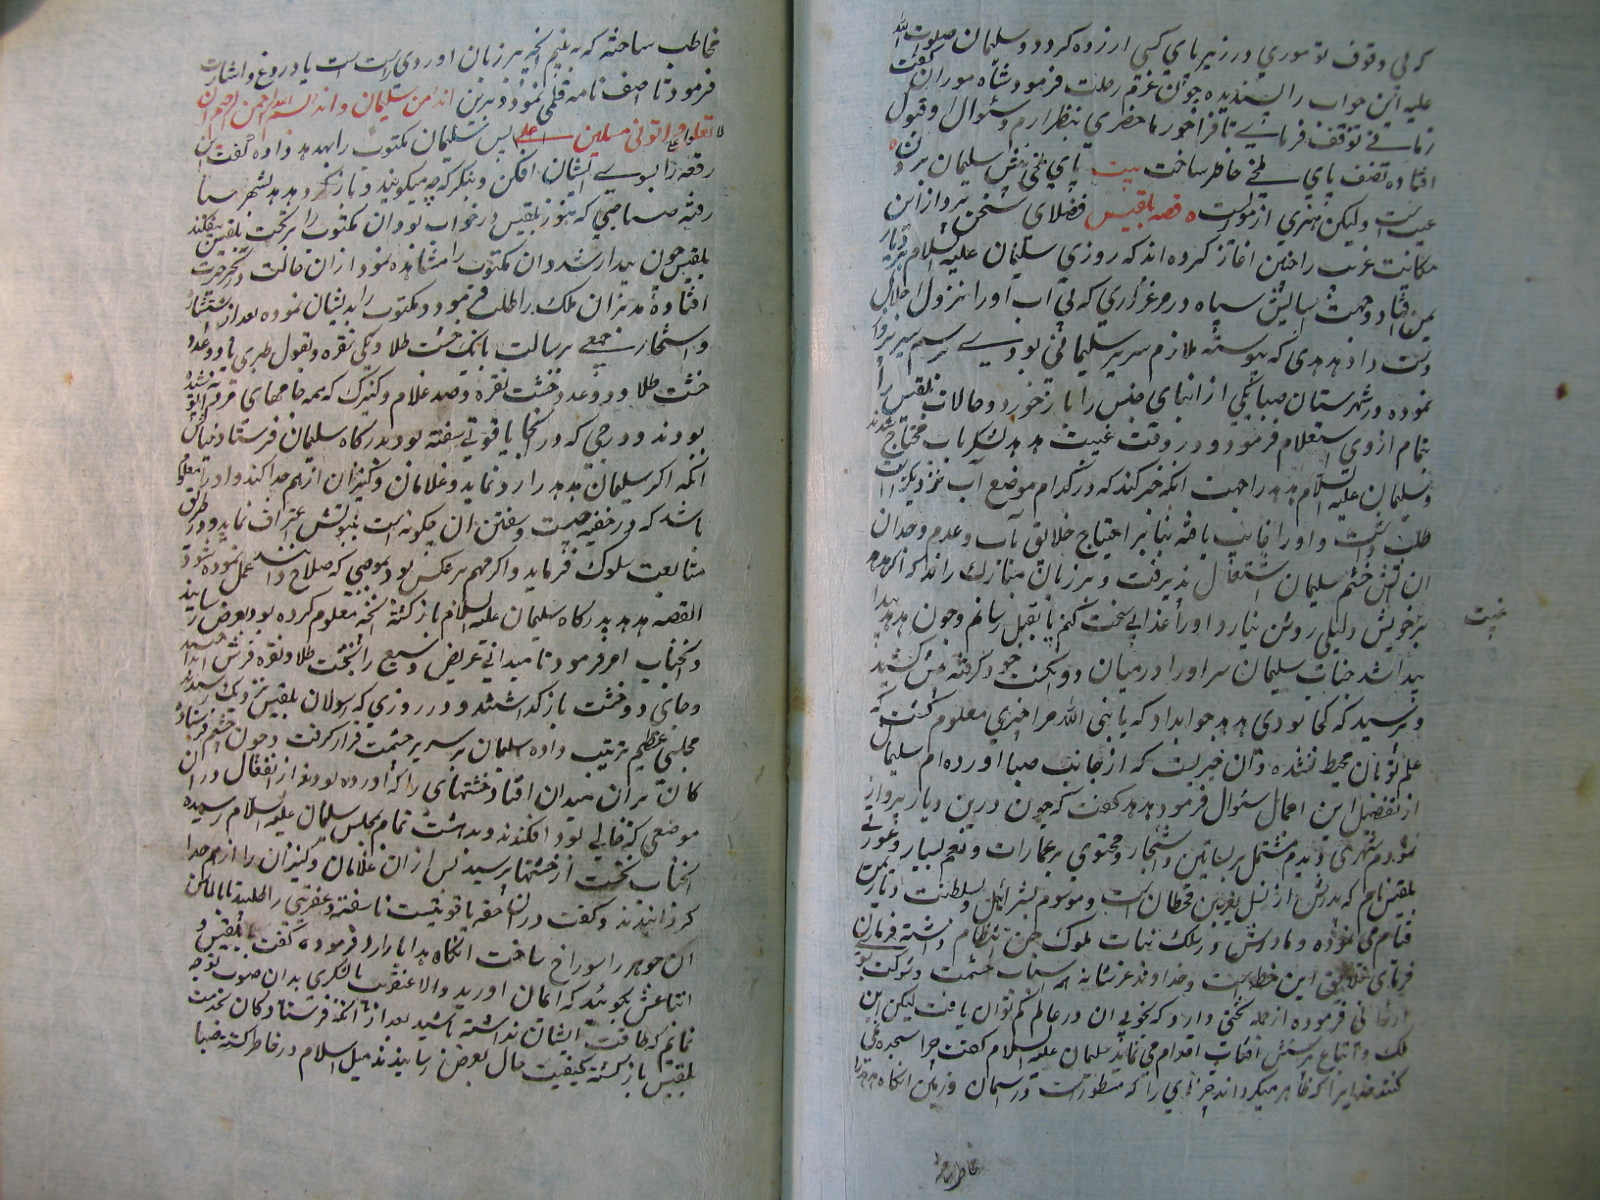 که بی وقوف تو موری در زیر پای کسی ارزده کردد و سلیمان صلوت الله
علیه این جواب را پسندیده چون عزم رحلت فرمود شاه موران گفت
زمانی توقف فرمای تا فراخور ما حضری بنظر ارم و سئوال او قبول
افتاده نصف پای ملخی حاضر ساخت بیت پای ملخی پیش سلیمان بردن
عیب است ولیکن هنری از مورست قصه بلقیس فضلای سخن پرداز این
حکایت غریب را چنین اغاز کرده اند که روزی سلیمان علیه السلام
یمن افتاد و جهت اسایش سپاه در مرغزاری که بی اب بود نزول اجلال
دست داد هدهدی که پیوسته ملازم سریر سلیمانی بودی برسم سیر پرواز
نموده در شهرستان صبا یکی از ابنای جنس را باز خورد و حالات بلقیس را
تمام از وی استعلام فرمود و در وقت غیبت هدهد لشکر باب محتاج شدند
و سلیمان علیه السلام هدهد را جهت انکه خبر کند که در کدام موضع آب نزدیکترست
طلب داشت و او را غایب یافته بنابر احتیاج خلایق بآب و عدم وجدان
ان اتش خشم سلیمان اشتعال پذیرفت و بر زبان مبارک راند که اکر هدهد
بر خویش دلیلی روشن نیارد او را عذابی سخت کنم یا بقتل رسانم و چون هدهد پیدا
غیبت
پیدا شد جناب سلیمان سر او را در میان دو انکشت خود کرفته پیش کشید
و پرسید که کجا بودی هدهد جواب داد که یا نبی الله مرا خبری معلوم کشت که
علم تو بان محیط نشده و آن خبریست که از جانب صبا آورده ام سلیمان
از تفصیل این اجمال سئوال فرمود هدهد گفت که چون درین دیار پرواز
نمودم شهری دیدم مشتمل بر بساتین و اشجار و محتوی بر عمارات و نعم بسیار و عورتی
بلقیس نام که پدرش از نسل یعرب بن قحطان است و موسوم بشراحیل بسلطنت دیار یمن
قیام می نموده و مادرش در سلک بنات ملوک جن انتظام داشته فرمان
فرمای خلایق این خطه است و خداوند عز شانه همه اسباب حشمت و شوکت بوی
ارزانی فرموده از جمله تختی دارد که بخوبی ان در عالم کم توان یافت لیکن این
ملک و اتباع بپرستش افتاب اقدام می نمایند سلیمان علیه السلام گفت چرا سجده نمی
کنند خدایرا که ظاهر میکرداند چیزهای را که مستورست در اسمان و زمین انکاه هدهد را
مخاطب ساخته
مخاطب ساخته که به بینیم انچه بر زبان اوردی راست است یا دروغ و اشارت
فرمود تا اصف نامه قلمی نمود و برین انه من سلیمان و انه بسم الله الرحمن الرحیم ان
لا تعلوا علی و اتونی مسلمین پس سلیمان مکتوب را بهدهد داده گفت این
رقعه را بسوی ایشان افکن و بنکر که چه میکویند و باز کرد هدهد بشهر سبا
رفته صباحی که هنوز بلقیس در خواب بود ان مکتوب را بر تخت بلقیس بیفکند
بلقیس چون بیدار شد و ان مکتوب را مشاهده نمود از ان حالت در تحیر و حیرت
افتاده مدبران ملک را طلب فرمود و مکتوب را بدیشان نموده بعد از استشاره
و استخاره جمعی برسالت با یک خشت طلا و یکی نقره و بقول طبری با دو عدد
خشت طلا و دو عدد خشت نقره و صد غلام و کنیزک که همه جامهای
بودند و درجی که در انجا یاقوتی ناسفته بود بدرکاه سلیمان فرستاد بنا بر
انکه اکر سلیمان هدیه را رد نماید و غلامان و کنیزان از هم جدا کند و او را معلوم
باشد که در حقه چیست و سفتن ان چکونه است بنبوتش اعتراف نماید و در طریق
متابعت سلوک فرماید و اکر مهم بر عکس بود بموجبی که صلاح دانند عمل نموده شود
القصه هدهد بدرکاه سلیمان علیه السلام باز کشته انچه معلوم کرده بود بعرض رسانید
و انجناب امر فرمود تا میدانی عریض وسیع را بخشت طلا و نقره فرش انداختند
و جای دو خشت باز کذاشتند و در روزی که رسولان بلقیس نزدیک رسیدند
مجلسی عظیم ترتیب داده سلیمان بر سریر حشمت قرار کرفت و چون چشم فرستاد
کان بر ان میدان افتاد خشتهای را که آورده بودند از انفعال در ان
موضعی که خالی بود افکندند و بدهشت تمام بمجلس سلیمان علیه السلام رسیده
انجناب نخست از خشتها پرسید پس از ان غلامان و کنیزان را از هم جدا
کردانیدند و گفت در ان حقه یاقوتیست ناسفته و عفریتی را طلبید تا بالماس
ان جوهر را سوراخ ساخت انکاه هدایا را رد فرموده گفت بلقیس و
اتباعش بکوئید که ایمان اورید و الا عنقریب با لشکری بدان صوب توجه
نمایم که طاقت ایشان نداشته باشید بعد از انکه فرستادکان بخدمت
بلقیس باز کشته کیفیت حال بعرض رسانیدند میل اسلام در خاطر ملکه صبا